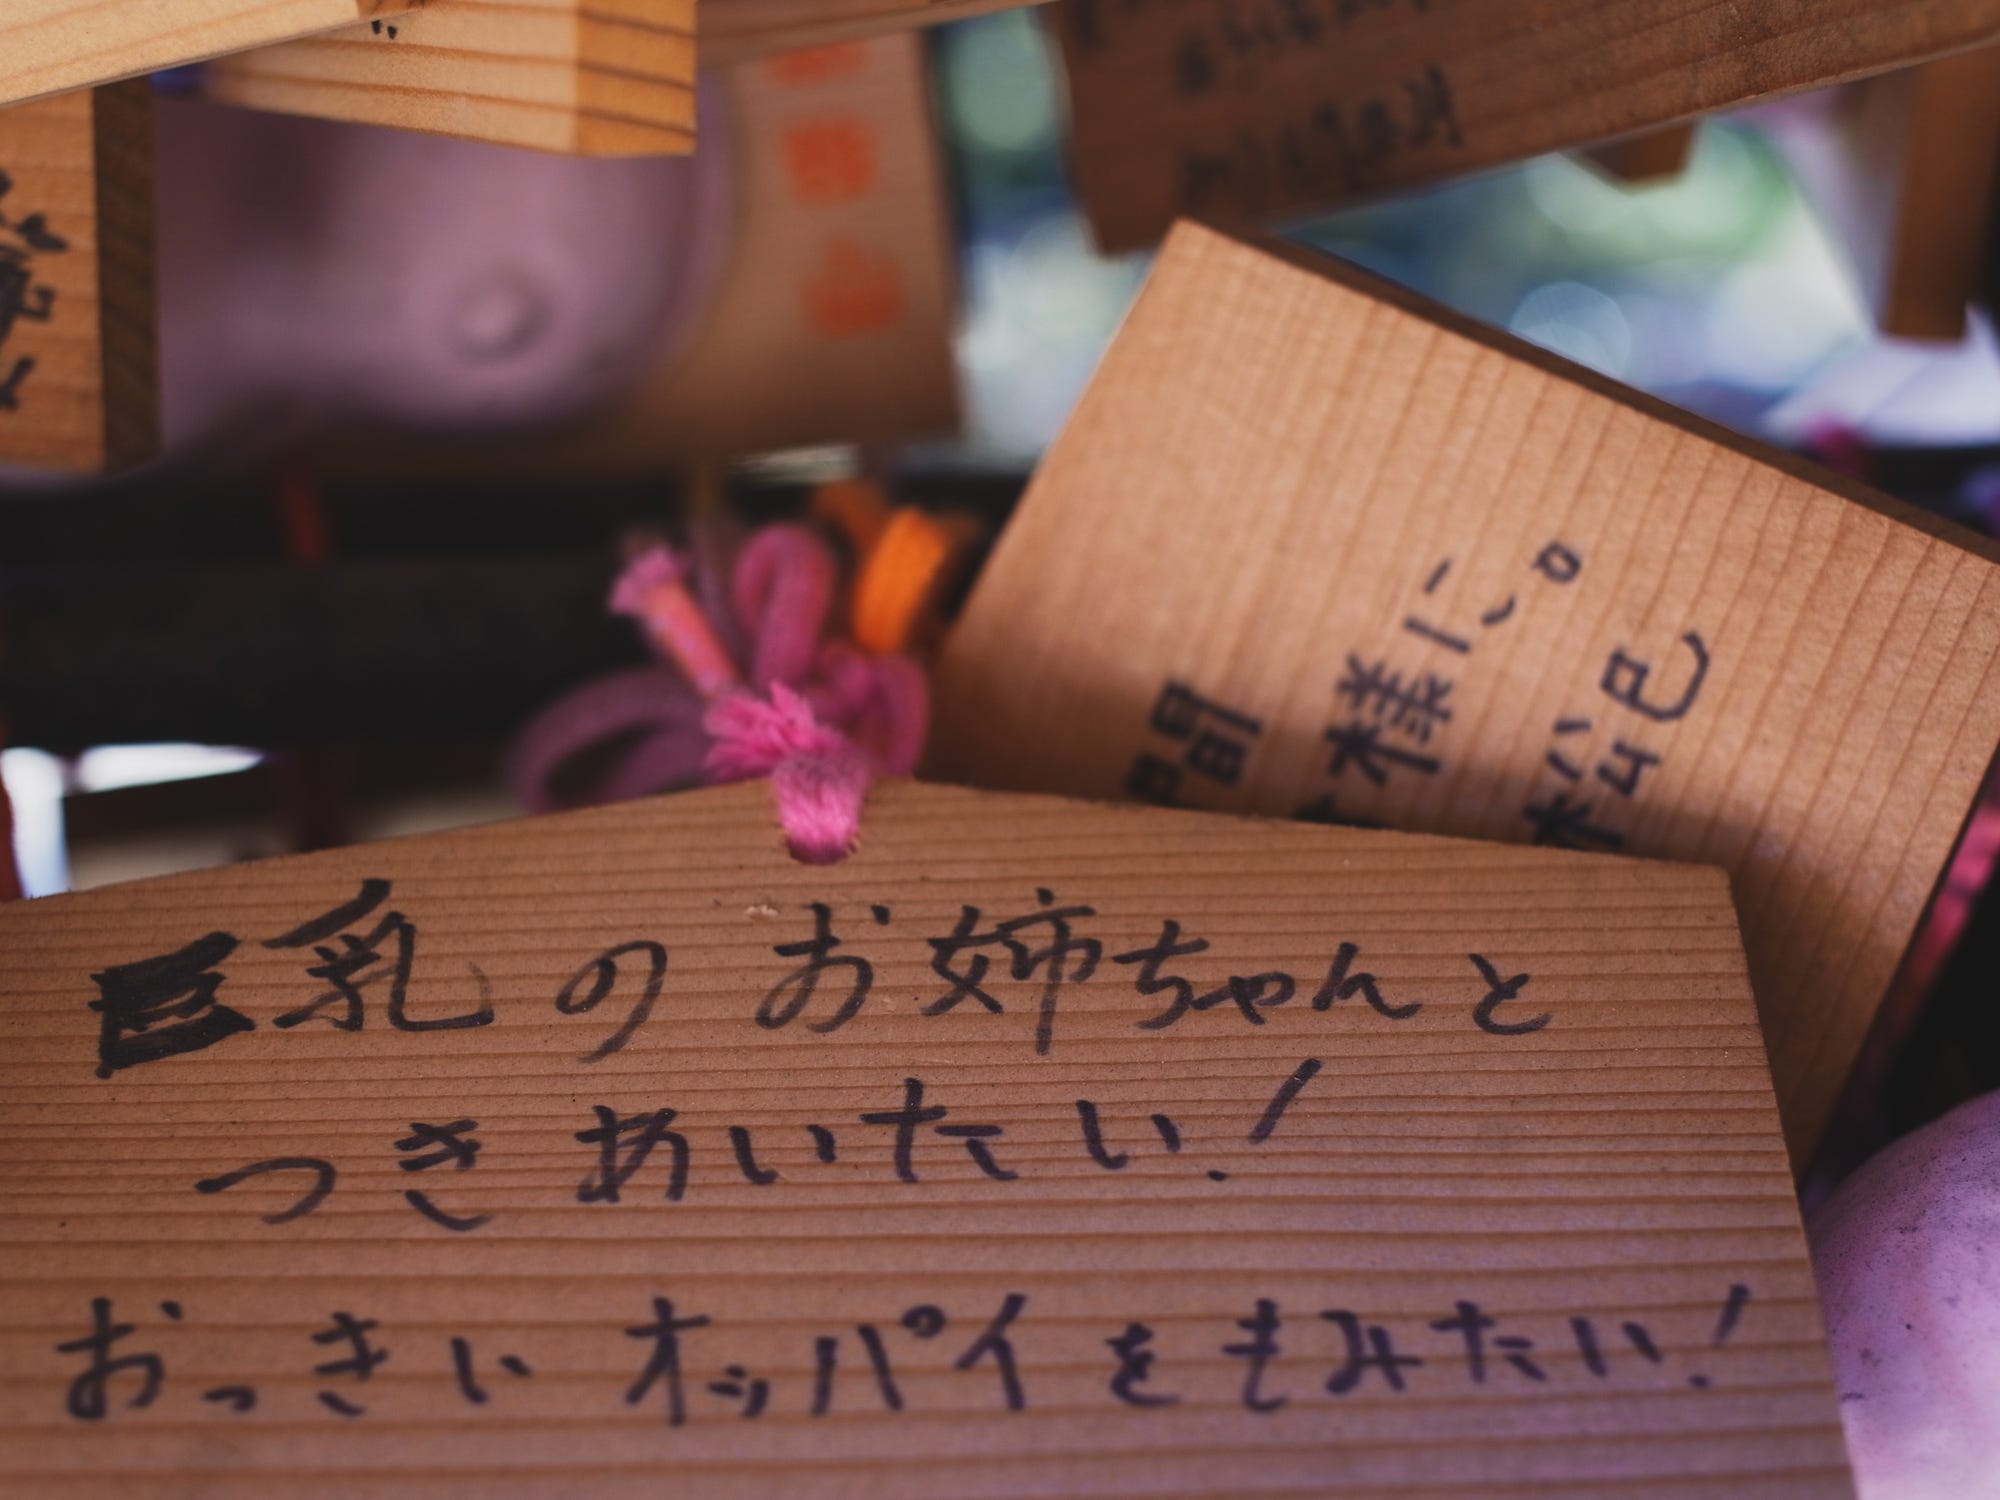 巨乳のお姉ちゃんと
つきあいたい！
おっきいオッパイをもみたい！
様に。